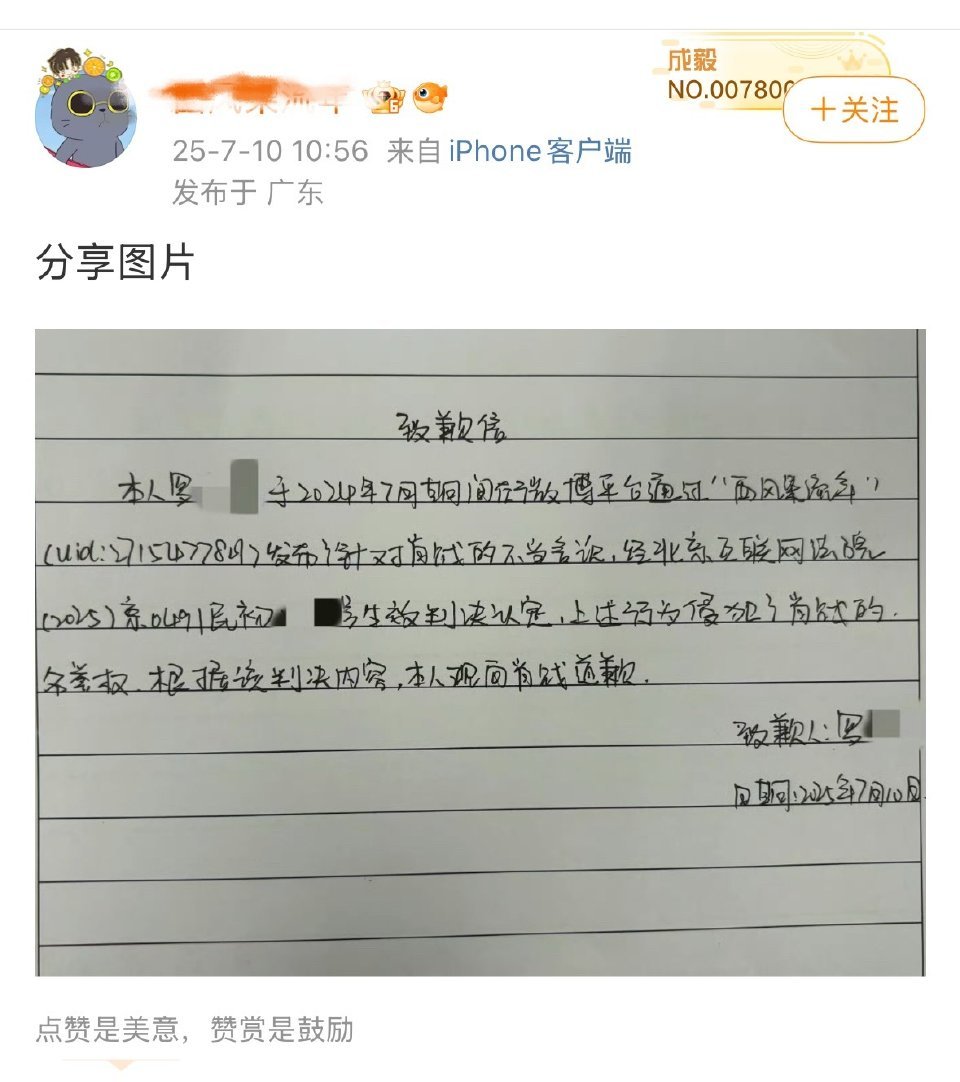 成毅
NO.007800
+关注
25-7-10 10:56 来自 iPhone客户端
发布于 广东
分享图片
致歉信
本人罗 于2024年7月期间在微博平台通过“西风乘流年”
(uid:2715477849)发布了针对肖战的不当言论,经北京互联网法院
(2025)京0491民初 号生效判决认定,上述行为侵犯了肖战的
名誉权.根据该判决内容,本人现向肖战道歉.
致歉人:罗
日期:2025年7月10日
点赞是美意,赞赏是鼓励